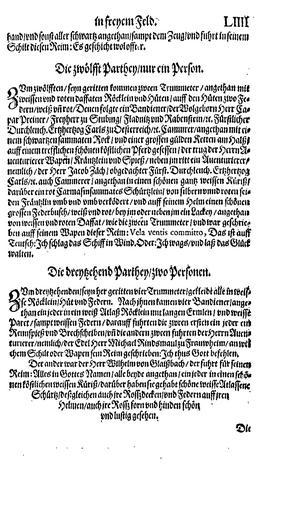 in freyem Feld. LIIII
band/ vnd sonst aller schwartz angethan/ sampt dem Zeug/ vnd fuhrt in seinem
Schilt diesen Reim: Es geschicht wol offt. ꝛc.
Die zwölfft Parthey/ nur ein Person.
ZVm zwölfften/ seyn geritten kommen zween Trummeter/ angethan mit
zweissen vnd roten daffaten Röcklein vnd Hüten/ auff den Hüten zwo Fe-
dern/ weiß vnd rot/ Denen folgte ein Bandierer/ der Wolgeborn Herr Ca-
par Preiner/ Freyherr zu Stubing/ Fladnitz vnd Rabenstein/ ꝛc. Fürstlicher
Durchleich. Ertzhertzog Carls zu Oesterreich/ ꝛc. Cammrer/ angethan mit ei-
nem schwartzen sammaten Rock/ vnd einer grossen gülden Ketten am Halß/
auff einem trefflichen schönen köstlichen Pferd gesessen/ der trug der Herrn A-
uenturierer Wapen/ Kräntzlein vnd Spieß/ neben jm ritt ein Auenturierer/
nemlich/ der Herr Jacob Zäch/ obgedachter Fürst. Durchleuch. Ertzhertzog
Carls/ ꝛc. auch Cammerer/ angethan in einen schönen gantz weissen Küriß/
darüber ein rot Carmasinsammates Schürtzlein/ von silberm vnd roten sei-
den Fräntzlin vmb vnd vmb verbördert/ vnd auff seinem Helm einen schönen
grossen Federbusch/ weiß vnd rot/ bey jm oder neben jm ein Lackey/ angethan
von weissen vnd roten Daffat/ wie die zween Trummeter/ vnd war geschrie-
ben auff seinem Wapen dieser Reim: Vela ventis committo, Das ist auff
Teutsch: Ich schlag das Schiff in Wind. Oder: Ich wags/ vnd laß das Glück
walten.
Die dreytzehend Parthey/ zwo Personen.
ZVm dreytzehenden/ seyn her geritten vier Trummeter/ gekleidt alle in weis-
se Röcklein/ Hüt vnd Federn. Nach jhnen kamen vier Bandierer/ ange-
than ein jeder in ein weiß Atlaß Röcklein mit langen Ermlen/ vnd weisse
Paret/ sampt weissen Federn/ darauff fuhrten die zween ersten ein jeder ein
Rennspieß vnd Brechscheiben/ vnd die andern zween fuhrten der Herrn Auen-
turierer/ nemlich/ der Edel Herr Michael Rindsmaul zu Frauwheim/ an wel-
chem Schilt oder Wapen sein Reim geschrieben: Ich thus Gott befehlen.
Der ander war der Herr Wilhelm von Glaißbach/ der fuhrt für seinen
Reim: Alles in Gottes Namen/ alle beyde angethan/ ein jeder in einen schö-
nen köstlichen weissen Küriß/ darüber haben sie gehabt schöne weisse Atlassene
Schürtz/ desgleichen auch jre Rosszdecken/ vnd Federn auff jren
Helmen/ auch jre Rossz forn vnd hinden schön
vnd lustig gesehen.
Die